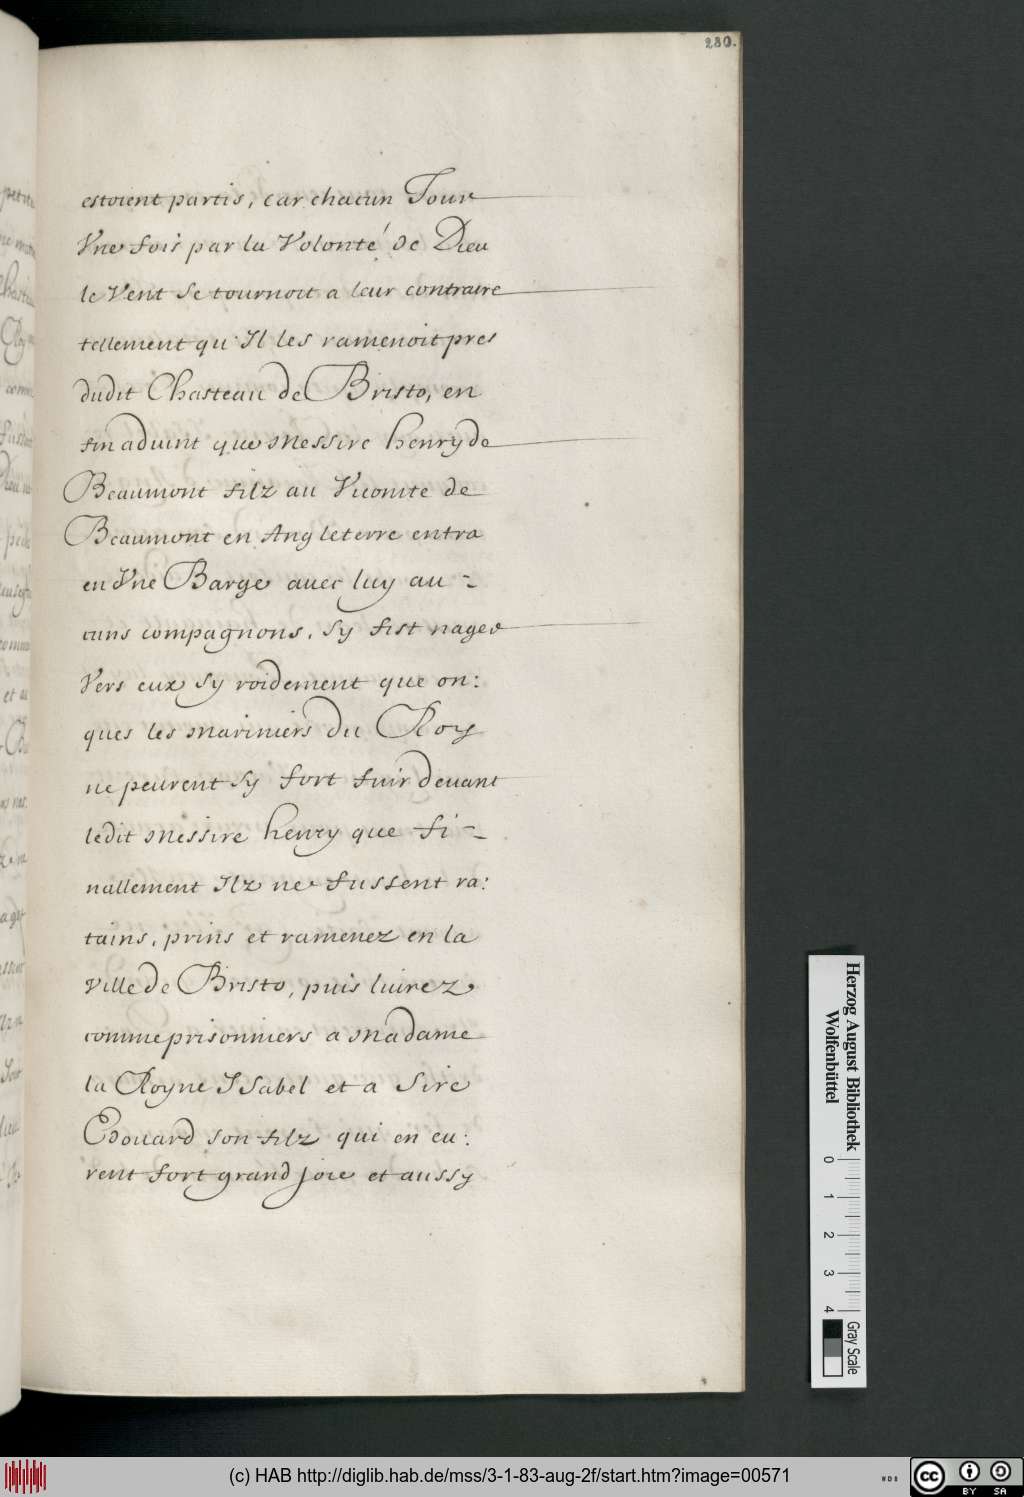 280.
estoient partis, car chacun Jour
Vne fois par la Volonté de Dieu
le Vent se tournoit a leur contraire
tellement qu'Il les ramenoit pres
dudit Chasteau de Bristo, en
fin aduint que Messire henry de
Beaumont filz au Vicomte de
Beaumont en Angleterre entra
en Vne Barge auec luy au -
cuns compagnons, sy fist nager
Vers eux sy roidement que on:
ques les Mariniers du Roy
ne peurent sy fort fuir deuant
ledit Messire henry que fi -
nallement Ilz ne fussent ra:
tains, prins et ramenez en la
ville de Bristo, puis liurez
comme prisonniers a Madame
la Royne Isabel et a Sire
Edouard son filz qui en eu:
rent fort grand joie et aussy
Herzog August Bibliothek
Wolfenbüttel
0 1 2 3 4
Gray Scale
(c) HAB http://diglib.hab.de/mss/3-1-83-aug-2f/start.htm?image=00571
cc BY SA